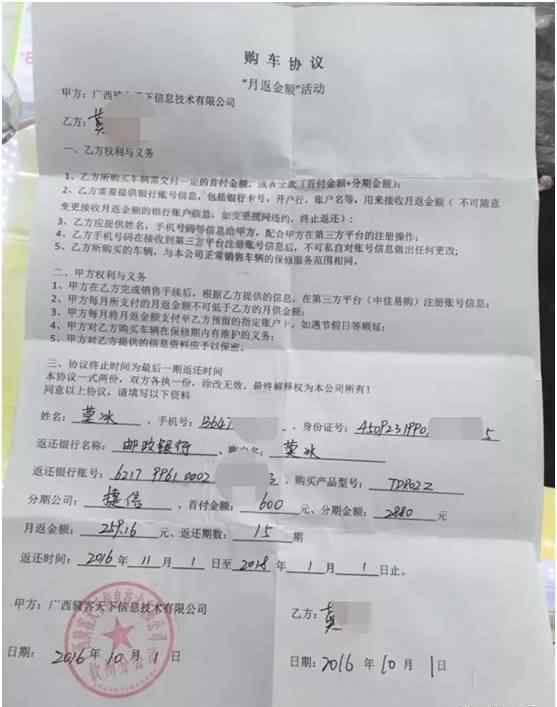 购车协议
“月返金额”活动
甲方：广西骑客天下信息技术有限公司
乙方：莫
一、乙方权利与义务
1、乙方所购买车辆需交付一定的首付金额，或者全款（首付金额+分期金额）；
2、乙方需要提供银行账号信息，包括银行卡号，开户行，账户名等，用来接收月返金额（不可随意
变更接收月返金额的银行账户信息，如变更视同违约，终止返还）；
3、乙方应提供姓名，手机号码等信息给甲方，配合甲方在第三方平台的注册操作；
4、乙方手机号码在接收到第三方平台注册账号信息后，不可私自对账号信息做出任何更改；
5、乙方所购买的车辆，与本公司正常销售车辆的保修服务范围相同。
二、甲方权利与义务
1、甲方在乙方完成销售手续后，根据乙方提供的信息，在第三方平台（中仕易购）注册账号信息；
2、甲方每月所支付的月返金额不可低于乙方的月供金额；
3、甲方每月将月返金额支付至乙方预留的指定账户下，如遇节假日等顺延；
4、甲方对乙方购买车辆在保修期内有维护的义务；
5、甲方对乙方提供的信息资料应予以保密。
三、协议终止时间为最后一期返还时间
本协议一式两份，双方各执一份，涂改无效，最终解释权为本公司所有！
同意以上协议，请填写以下资料
姓名：莫冰 、手机号：13647 、身份证号：4509231990 5
返还银行名称：邮政银行、账户名：莫冰
返还银行账号：6217 9961 0002 、购买产品型号：TDP02Z
分期公司：捷信 、首付金额：600 元、分期金额：2880 元
月返金额：259.16 元、返还期数：15 期
返还时间：2016 年 11 月 1 日至 2018 年 1 月 1 日止。
甲方：广西骑客天下信息技术有限公司
乙方：莫
日期：2016 年 10 月 1 日
日期：2016 年 10 月 1 日